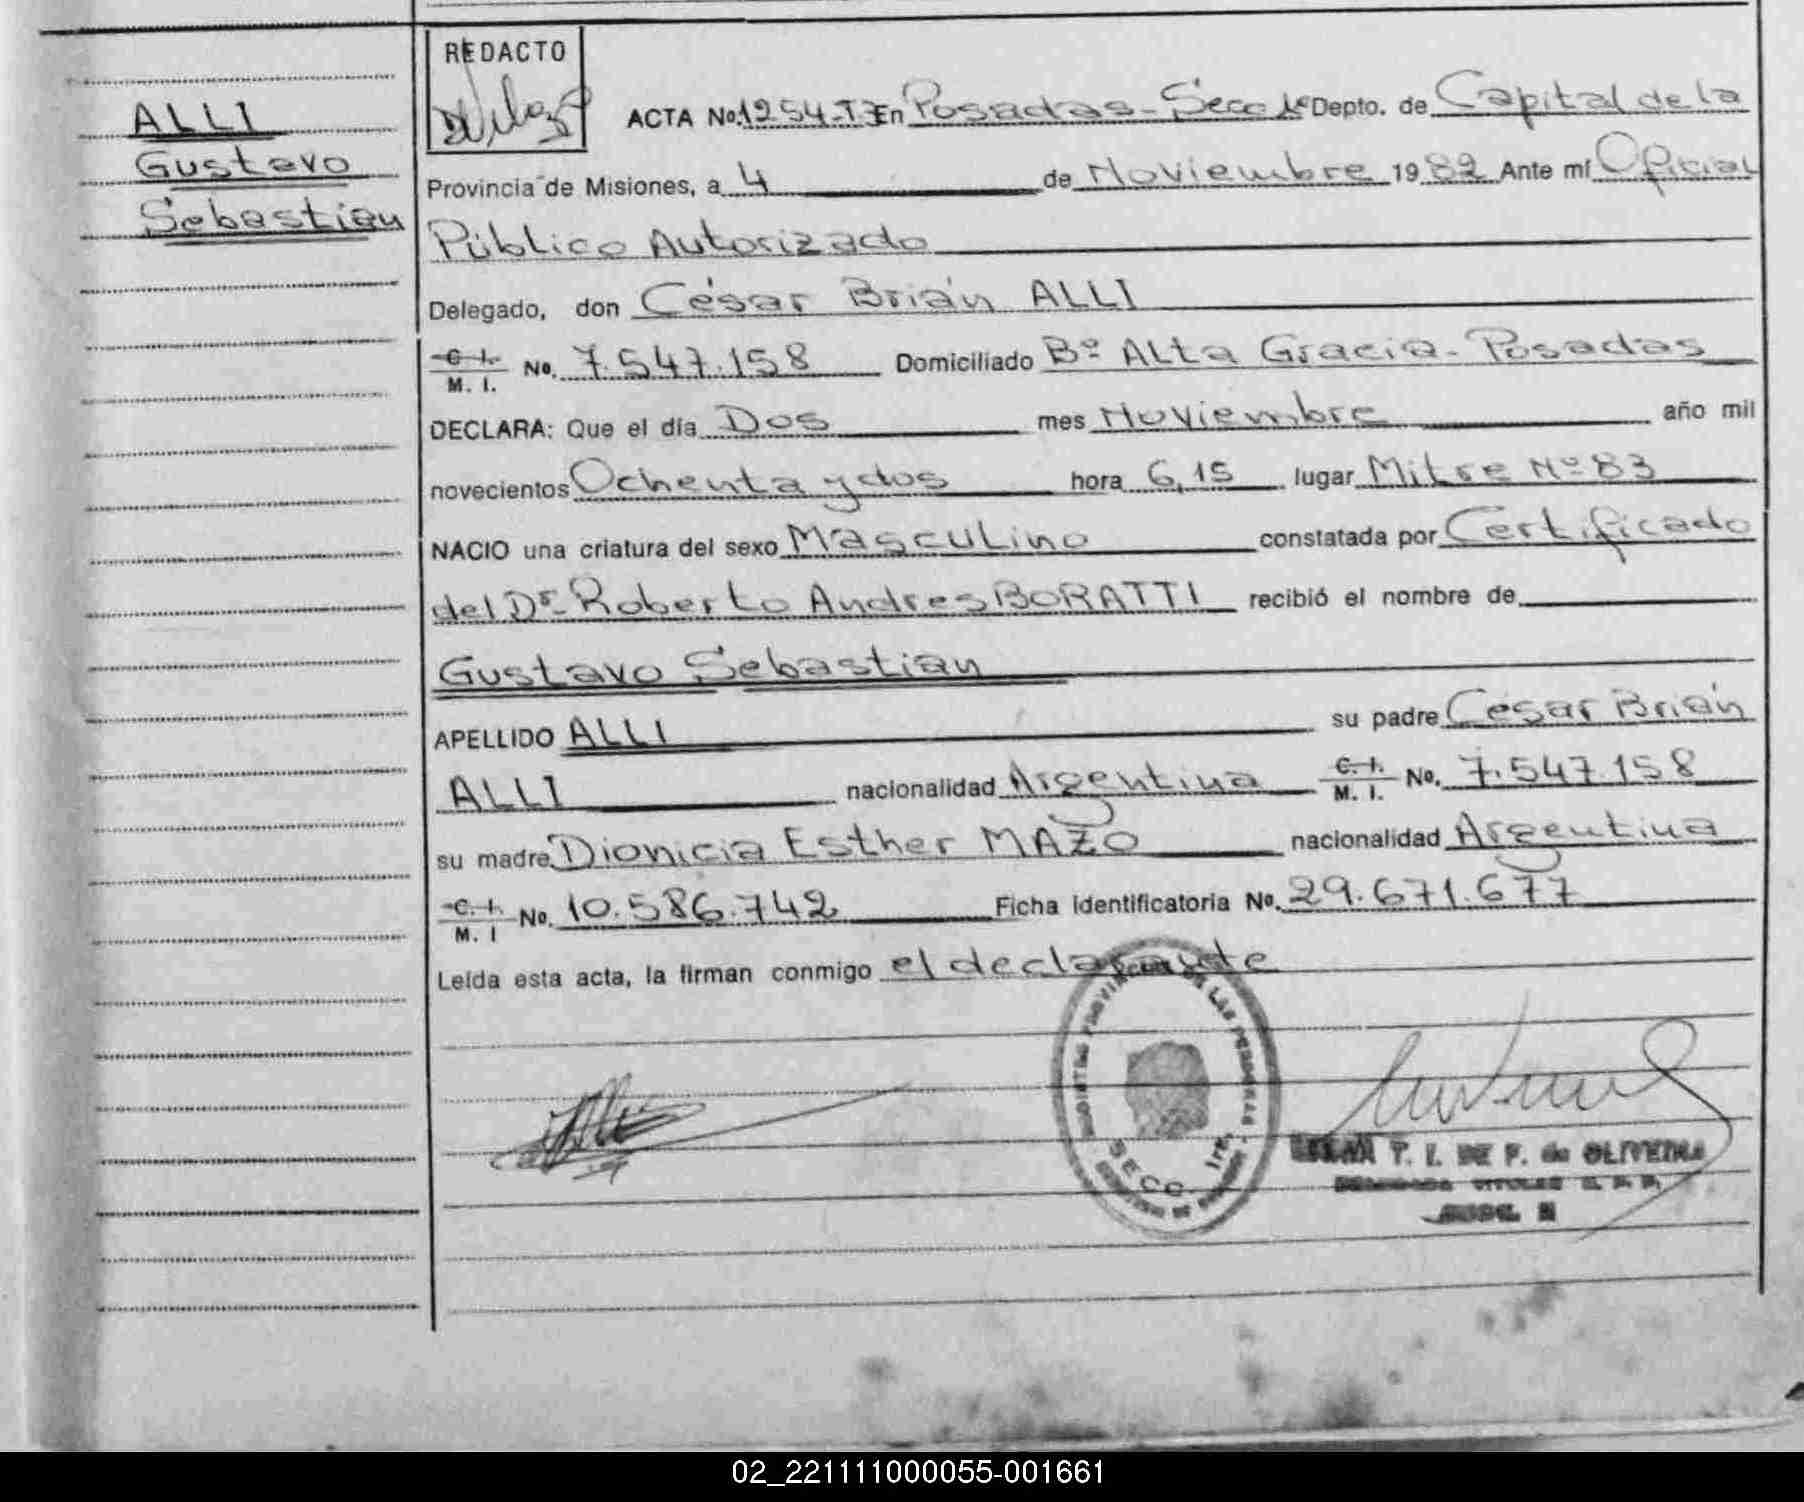 REDACTO
ALLI
Gustavo
Sebastián
ACTA No. 1254-T3 En Posadas-Secc 1ª Depto. de Capital de la
Provincia de Misiones, a 4 de Noviembre 1982 Ante mí Oficial
Público Autorizado
Delegado, don César Brián ALLI
C. I. M. I. No. 7.547.158 Domiciliado Bº Alta Gracia - Posadas
DECLARA: Que el día Dos mes Noviembre año mil
novecientos Ochenta y dos hora 6,15 lugar Mitre Nº 83
NACIO una criatura del sexo Masculino constatada por Certificado
del Dr. Roberto Andres BORATTI recibió el nombre de
Gustavo Sebastián
APELLIDO ALLI su padre César Brián
ALLI nacionalidad Argentina C. I. M. I. No. 7.547.158
su madre Dionicia Esther MAZO nacionalidad Argentina
C. I. M. I No. 10.586.742 Ficha identificatoria No. 29.671.677
Leída esta acta, la firman conmigo el declarante
DE LAS PERSONAS
SECC. 1ra.
T. I. DE F. de OLIVEIRA
02_221111000055-001661